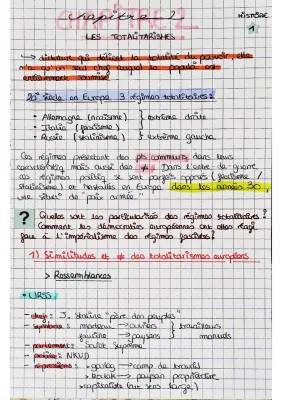 Chapitre 2
HISTOIRE
1
LES TOTALITARISMES
→ dictature qui détient la totalité du pouvoir, elle
n'a qu'un seul but auquel la population est
entièrement soumise
20e siècle en Europe 3 régimes totalitaires :
• Allemagne (nazisme) } extrême droite
• Italie (fascisme)
• Russie (stalinisme) } extrême gauche
Ces régimes présentent des pts communs dans leurs
caractéristiq mais aussi des ≠. Dans l'entre 2 guerre
ces régimes politiq se sont parfois opposés (fascisme /
stalinisme) et installés en Europe dans les années 30,
une situat° de paix armée."
? Quelles sont les particularités des régimes totalitaires ?
Comment les démocraties européennes ont elles réagi
face à l'impérialisme des régimes fascistes ?
1) Similitudes et ≠ des totalitarismes européens
> Ressemblances
• URSS
- chef : J. Staline "père des peuples"
- symbole : marteau → ouvriers } travailleurs
faucille → paysans } manuels
- parlement : Soviet Suprême
- police : NKVD
- répressions : × goulag → camp de travail
× koulak → paysan propriétaire
× capitaliste (au sens large)